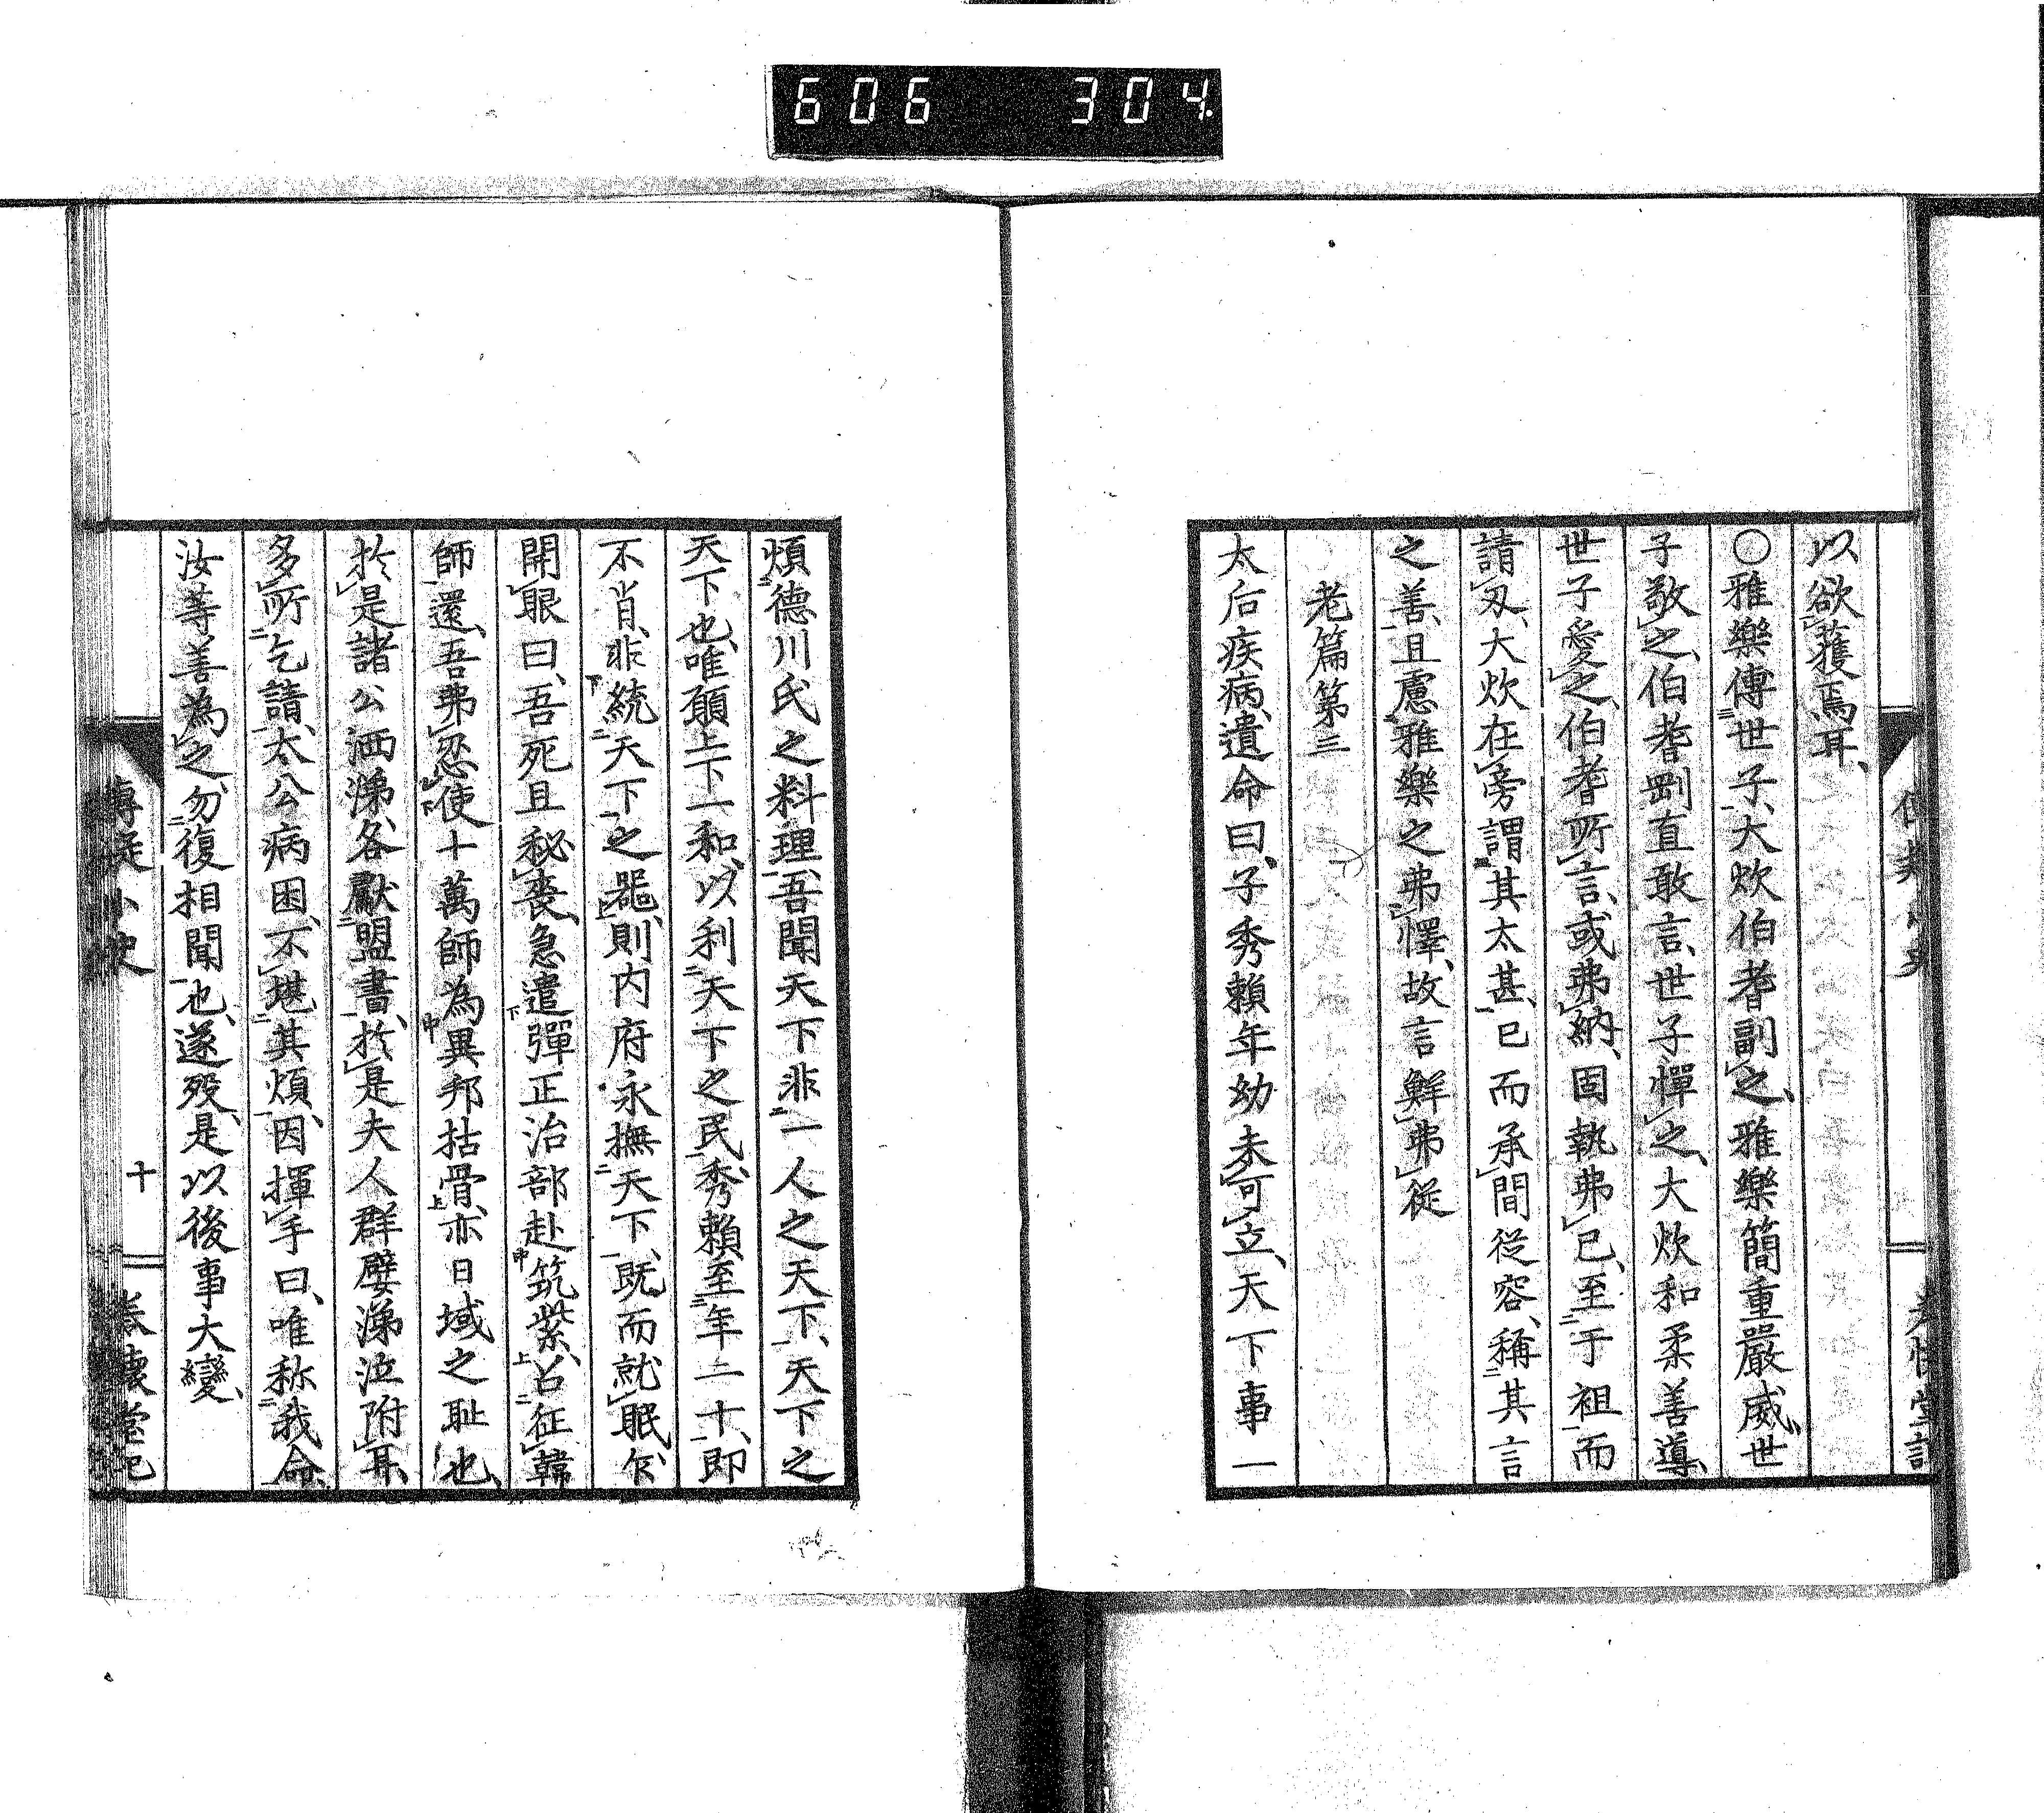 606 304
以欲獲焉耳、
〇雅樂傅世子、大炊伯耆副之、雅樂簡重嚴威、世
子敬之、伯耆剛直敢言、世子憚之、大炊和柔善導、
世子愛之、伯耆所言、或弗納、固執弗已、至于袒而
請刄、大炊在旁謂其太甚、已而承間從容、稱其言
之善、且慮雅樂之弗懌、故言鮮弗從
老篇第三
太后疾病、遺命曰、子秀賴年幼未可立、天下事一
煩德川氏之料理、吾聞天下非一人之天下、天下之
天下也、唯願上下一和、以利天下之民、秀賴至年二十、即
不肖、非統天下之器、則内府永撫天下、既而就眠、乍
開眼曰、吾死且秘喪、急遣彈正治部赴筑紫、召征韓
師還、吾弗忍使十萬師為異邦枯骨、亦日域之耻也、
於是諸公洒涕、各獻盟書、於是夫人群嬖涕泣附耳、
多所乞請、太公病困、不堪其煩、因揮手曰、唯称我命、
汝等善為之、勿復相聞也、遂殁、是以後事大變、
小史
十
懷堂記